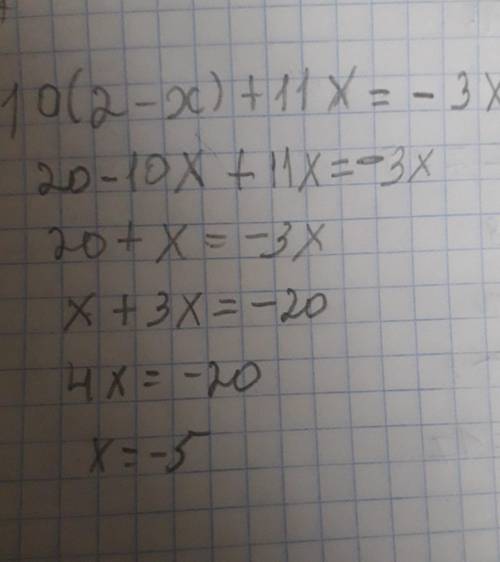 10(2-x)+11x=-3x
20-10x+11x=-3x
20+x=-3x
x+3x=-20
4x=-20
x=-5